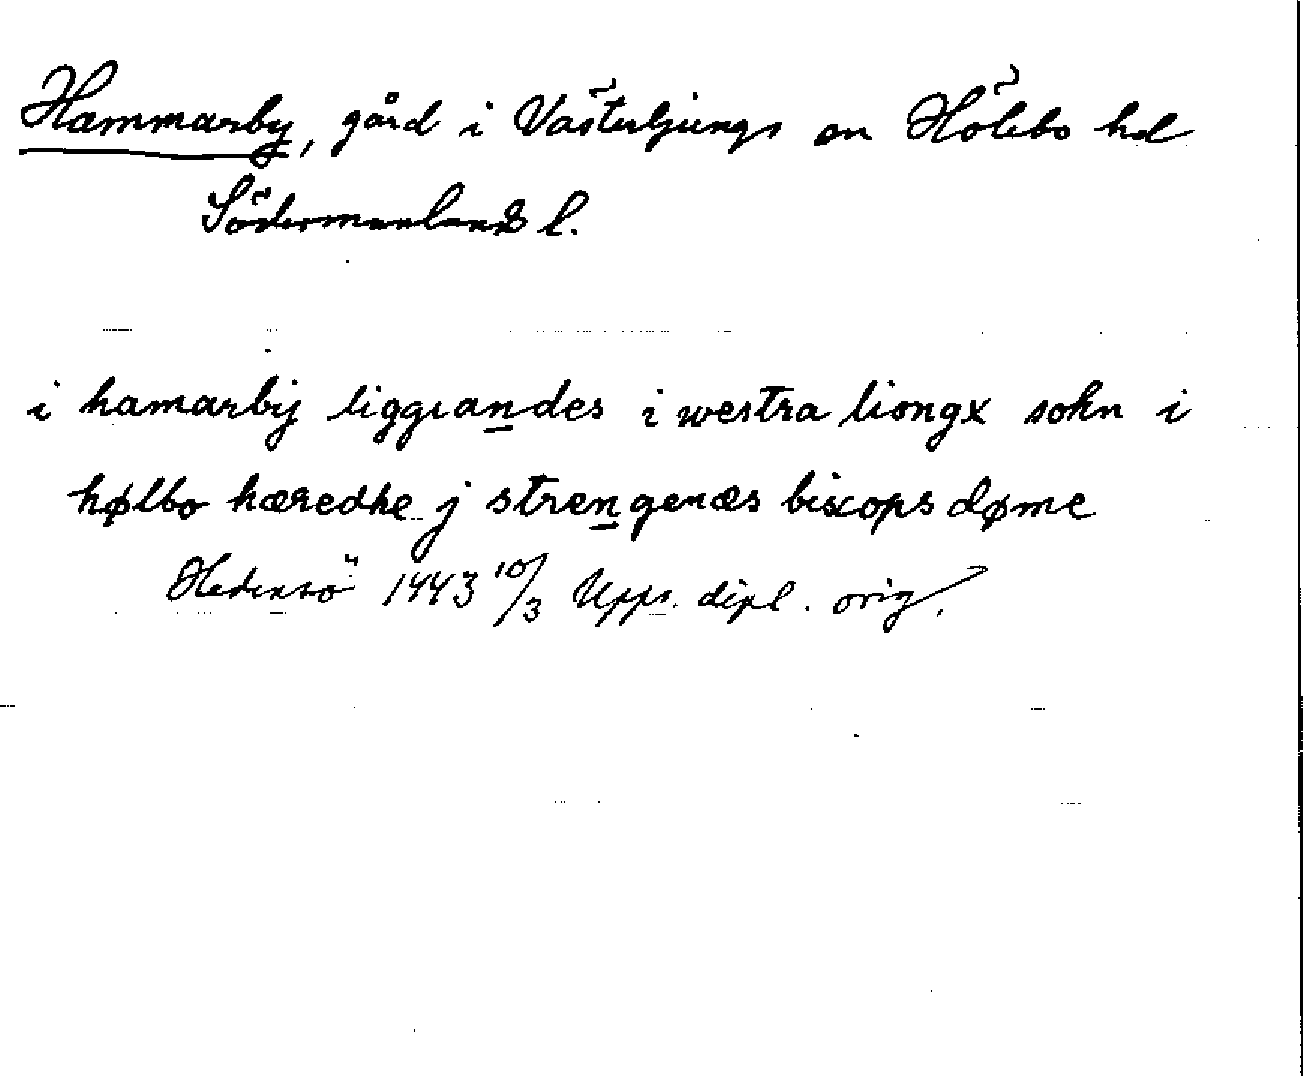 Hammarby, gård i Västerljungs sn Hölebo hd
Södermanlands l.
i hamarbij liggiandes i westra liongx sokn i
hølbo hæredhe j strengenæs biscops døme
Hedensö 1443 10/3 Upps. dipl. orig.